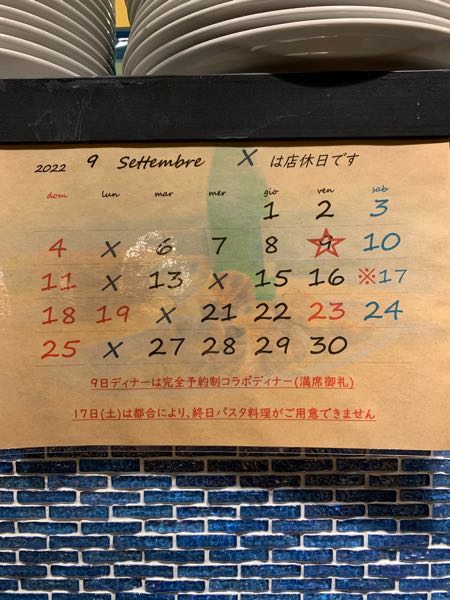 2022 9 Settembre X は店休日です
dom lun mar mer gio ven sab
1 2 3
4 X 6 7 8 9 10
11 X 13 X 15 16 ※17
18 19 X 21 22 23 24
25 X 27 28 29 30
9日ディナーは完全予約制コラボディナー(満席御礼)
17日(土)は都合により、終日パスタ料理がご用意できません